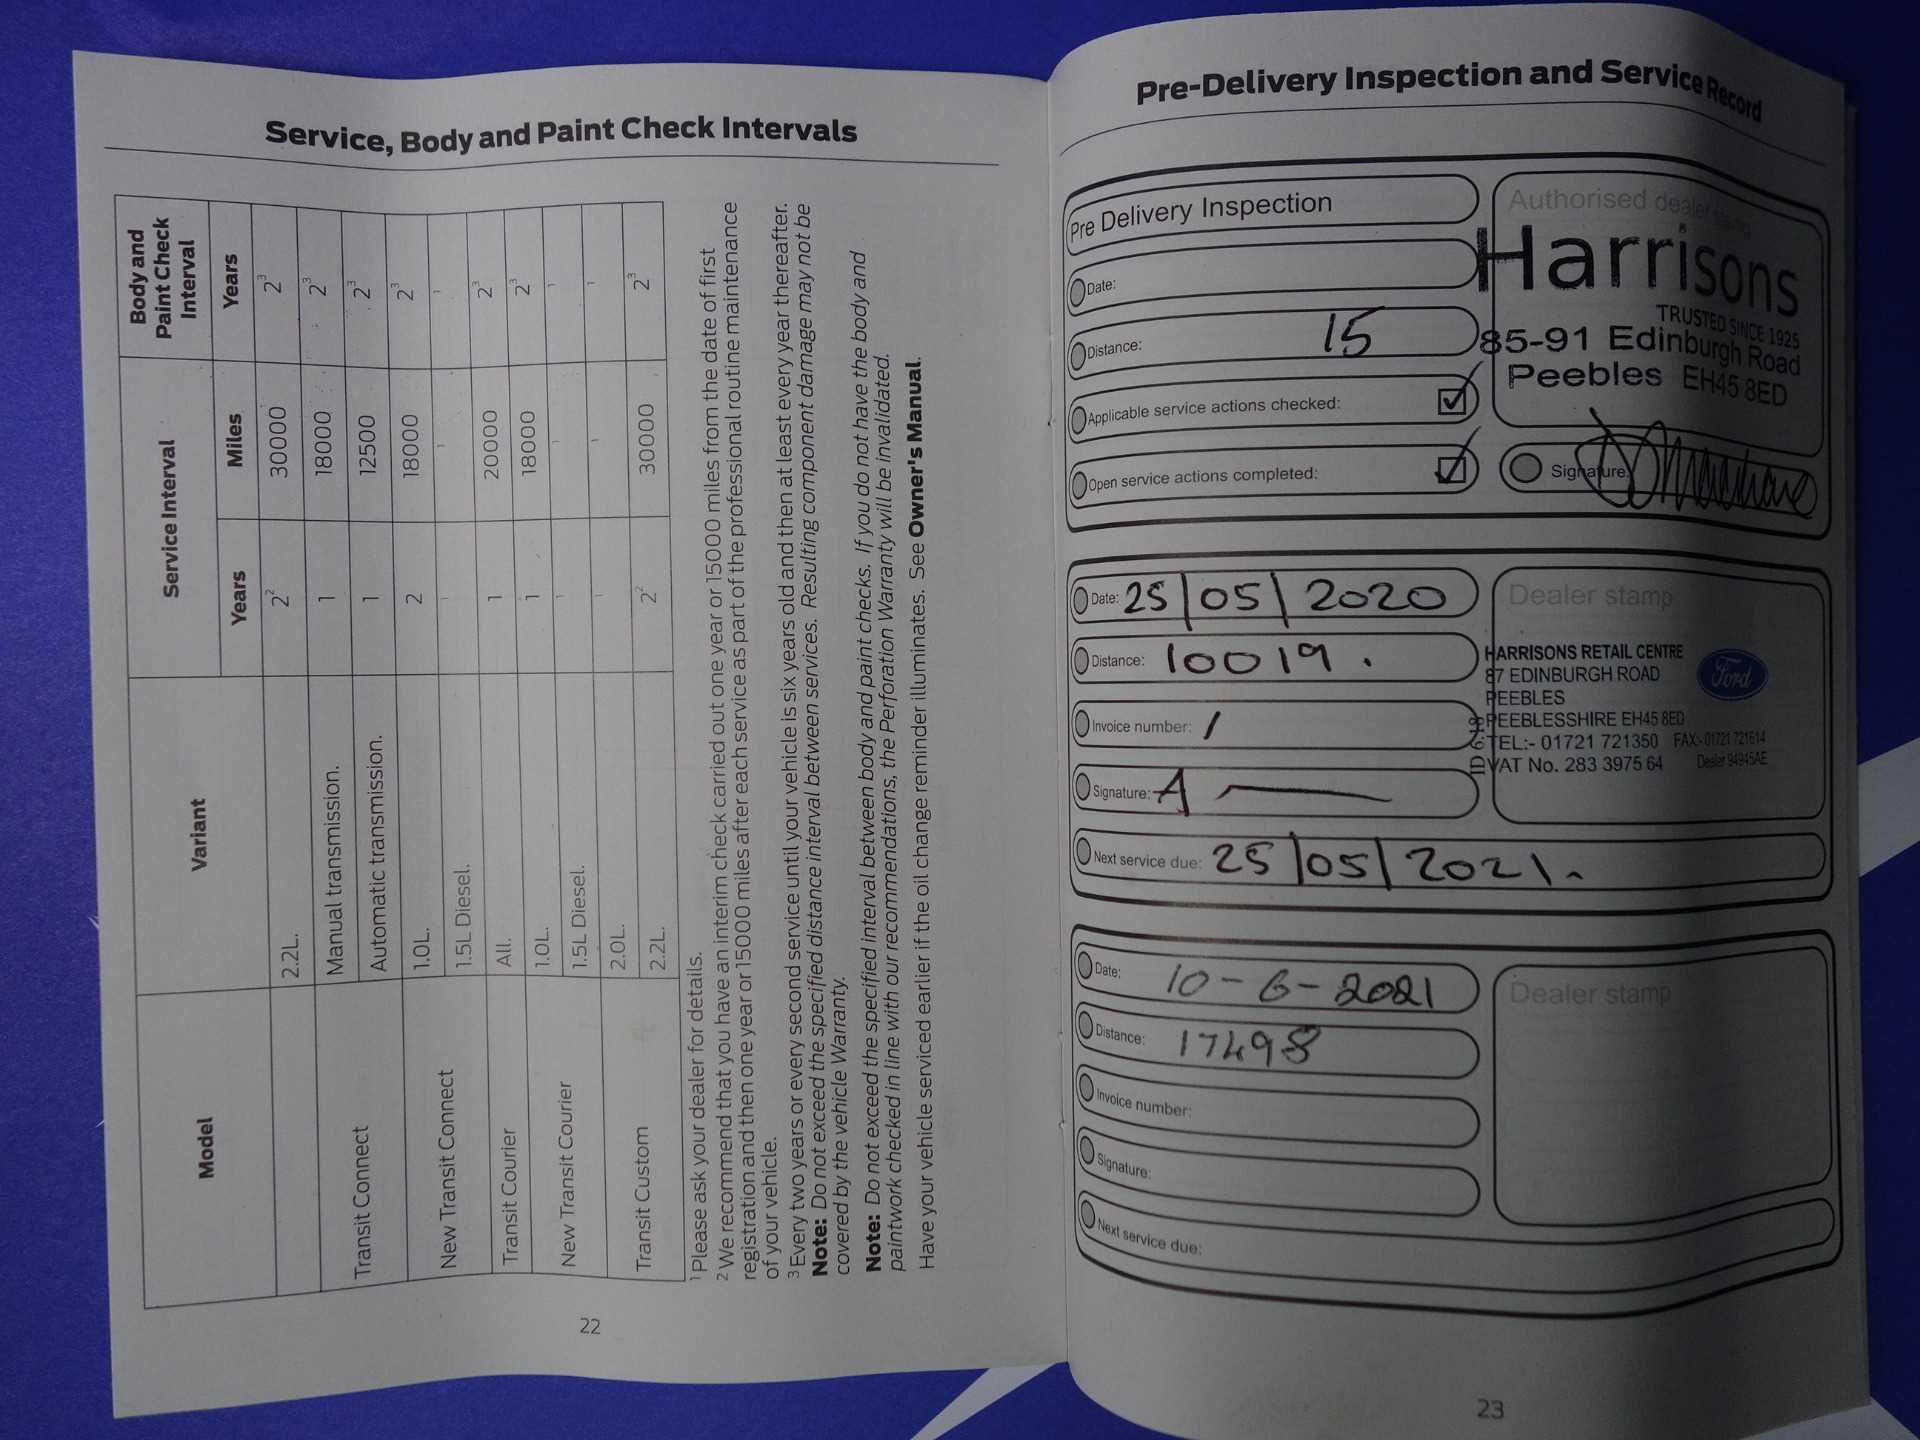 Service, Body and Paint Check Intervals
Model Variant Service Interval Body and Paint Check Interval
Years Miles Years
2.2L. 2² 30000 2³
Transit Connect Manual transmission. 1 18000 2³
Automatic transmission. 1 12500 2³
New Transit Connect 1.0L. 2 18000 2³
1.5L Diesel. ¹ ¹ ¹
Transit Courier All. 1 20000 2³
New Transit Courier 1.0L. 1 18000 2³
1.5L Diesel. ¹ ¹ ¹
Transit Custom 2.0L. ¹ ¹ ¹
2.2L. 2² 30000 2³
¹ Please ask your dealer for details.
² We recommend that you have an interim check carried out one year or 15000 miles from the date of first
registration and then one year or 15000 miles after each service as part of the professional routine maintenance
of your vehicle.
³ Every two years or every second service until your vehicle is six years old and then at least every year thereafter.
Note: Do not exceed the specified distance interval between services. Resulting component damage may not be
covered by the vehicle Warranty.
Note: Do not exceed the specified interval between body and paint checks. If you do not have the body and
paintwork checked in line with our recommendations, the Perforation Warranty will be invalidated.
Have your vehicle serviced earlier if the oil change reminder illuminates. See Owner's Manual.
22
Pre-Delivery Inspection and Service Record
Pre Delivery Inspection
Date:
Distance: 15
Applicable service actions checked:
Open service actions completed:
Authorised dealer stamp
Harrisons
TRUSTED SINCE 1925
85-91 Edinburgh Road
Peebles EH45 8ED
Signature:
Date: 25/05/2020
Distance: 10019.
Invoice number: /
Signature: A
Next service due: 25/05/2021.
Dealer stamp
HARRISONS RETAIL CENTRE
87 EDINBURGH ROAD
PEEBLES
PEEBLESSHIRE EH45 8ED
TEL:- 01721 721350 FAX:- 01721 721614
VAT No. 283 3975 64 Dealer 94945AE
Ford
Date: 10-6-2021
Distance: 17498
Invoice number:
Signature:
Next service due:
Dealer stamp
23